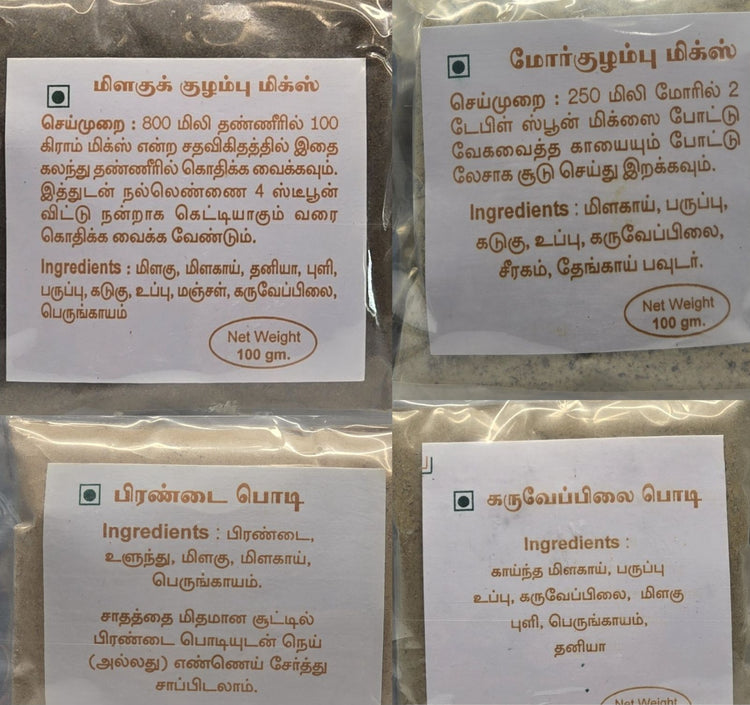 மிளகுக் குழம்பு மிக்ஸ்
செய்முறை : 800 மிலி தண்ணீரில் 100
கிராம் மிக்ஸ் என்ற சதவிகிதத்தில் இதை
கலந்து தண்ணீரில் கொதிக்க வைக்கவும்.
இத்துடன் நல்லெண்ணை 4 ஸ்டீபூன்
விட்டு நன்றாக கெட்டியாகும் வரை
கொதிக்க வைக்க வேண்டும்.
Ingredients : மிளகு, மிளகாய், தனியா, புளி,
பருப்பு, கடுகு, உப்பு, மஞ்சள், கருவேப்பிலை,
பெருங்காயம்
Net Weight
100 gm.
மோர்குழம்பு மிக்ஸ்
செய்முறை : 250 மிலி மோரில் 2
டேபிள் ஸ்பூன் மிக்ஸை போட்டு
வேகவைத்த காயையும் போட்டு
லேசாக சூடு செய்து இறக்கவும்.
Ingredients : மிளகாய், பருப்பு,
கடுகு, உப்பு, கருவேப்பிலை,
சீரகம், தேங்காய் பவுடர்.
Net Weight
100 gm.
பிரண்டை பொடி
Ingredients : பிரண்டை,
உளுந்து, மிளகு, மிளகாய்,
பெருங்காயம்.
சாதத்தை மிதமான சூட்டில்
பிரண்டை பொடியுடன் நெய்
(அல்லது) எண்ணெய் சேர்த்து
சாப்பிடலாம்.
கருவேப்பிலை பொடி
Ingredients :
காய்ந்த மிளகாய், பருப்பு
உப்பு, கருவேப்பிலை, மிளகு
புளி, பெருங்காயம்,
தனியா
Net Weight